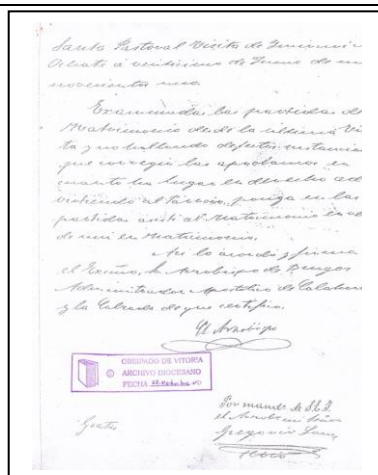 Santa Pastoral Visita de
á veintiuno de Junio de mil
novecientos uno.
Examinadas las partidas de
Matrimonio desde la ultima Visi
ta y no hallando defectos
que corregir las aprobamos en
cuanto ha lugar en derecho ad
virtiendo al Párroco, ponga en las
partidas
de mi en Matrimonio.
Asi lo acordó y firma
el Excmo. Sr. Arzobispo de Burgos
Administrador Apostólico de Calahorra
y la Calzada de que certifico.
El Arzobispo
OBISPADO DE VITORIA
© ARCHIVO DIOCESANO
FECHA
Por mandº de S.E.I.
el Arzobispo mi Señor
Gregorio
Gratis